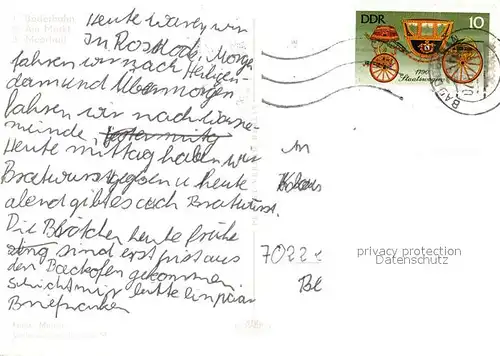 Heute waren wir
In Rostock, Morge
fahren wir nach Heiligen-
dam und Übermorgen
fahren wir nach Warne-
münde,
Heute mittag haben wir
Bratwurst gegesen u heute
abend gibt es auch Bratwurst.
Die Brötchen heute frühe
sind erst frist aus
den Backofen gekommen.
schickt mir bitte ein paar
Briefmarken
DDR 10
1790
Staatswagen
BAD
An
7022
privacy protection
Datenschutz
Am Markt